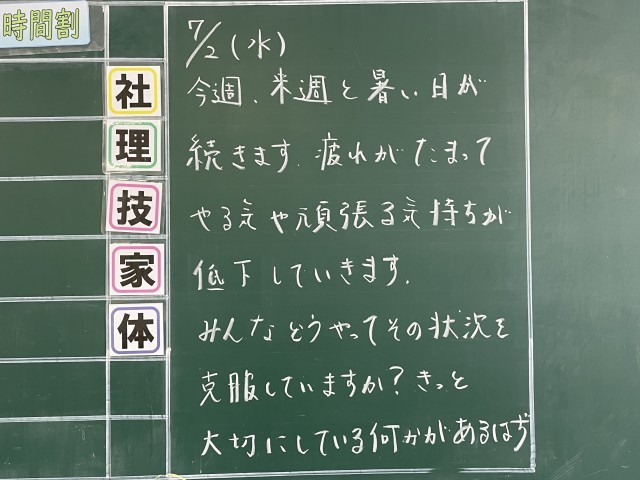 時間割
社
理
技
家
体
7/2(水)
今週、来週と暑い日が
続きます。疲れがたまって
やる気や頑張る気持ちが
低下していきます。
みんなどうやってその状況を
克服していますか?きっと
大切にしている何かがあるはず